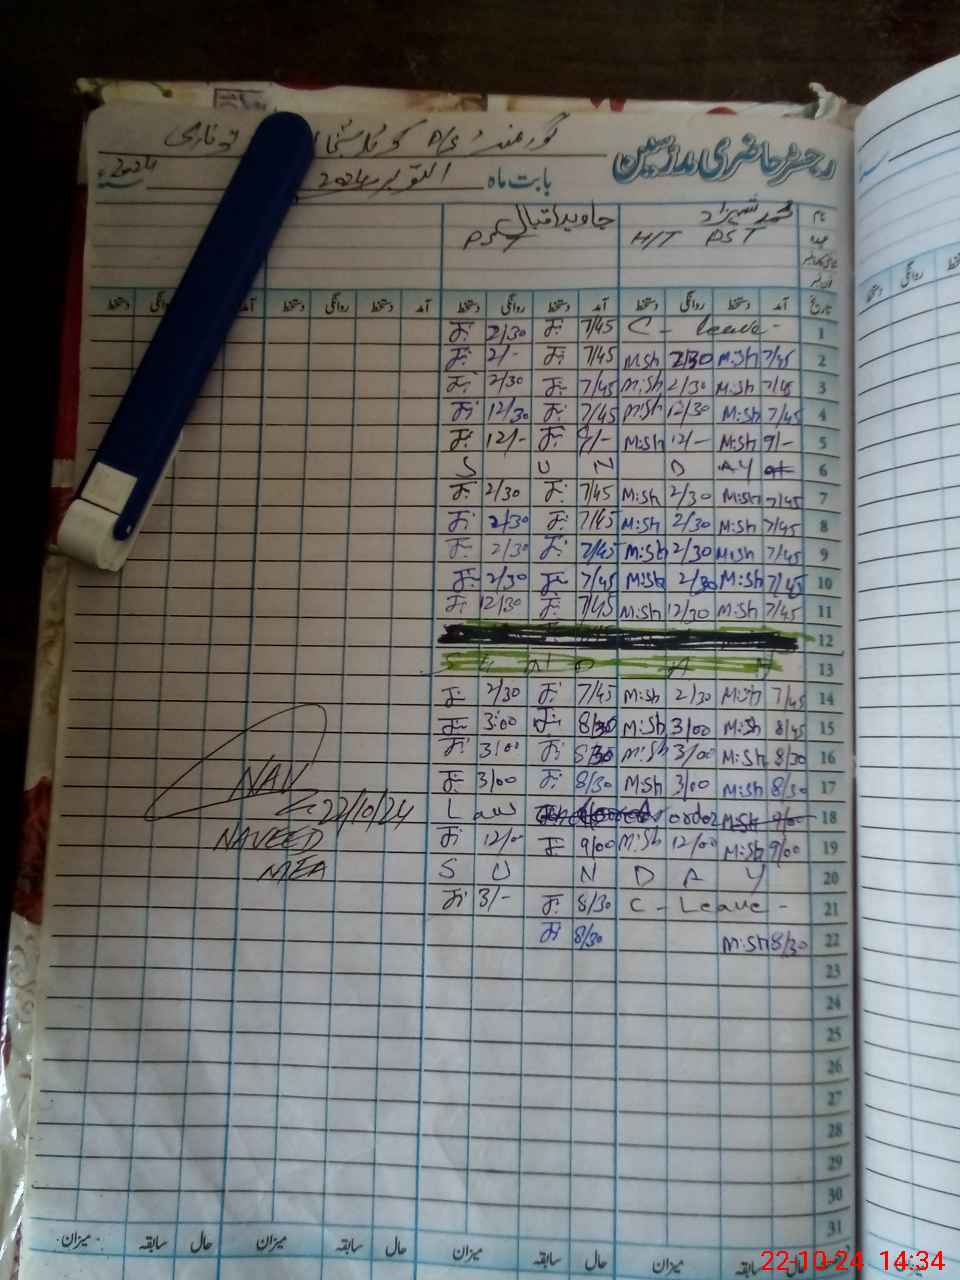 رجسٹر حاضری مدرسین
گورنمنٹ
بابت ماہ اکتوبر 2024 2024 سنہ
نام محمد شہزاد جاوید اقبال
عہدہ H/T PST PST
تاریخ آمد دستخط روانگی دستخط آمد دستخط روانگی دستخط آمد دستخط روانگی دستخط آمد
1 C - Leave - 7/45 2/30
2 7/45 M:Sh 2/30 M:Sh 7/45 2/-
3 7/45 M:Sh 2/30 M:Sh 7/45 2/30
4 7/45 M:Sh 12/30 M:Sh 7/45 12/30
5 9/- M:Sh 12/- M:Sh 9/- 12/-
6 S U N D AY
7 7/45 M:Sh 2/30 M:Sh 7/45 2/30
8 7/45 M:Sh 2/30 M:Sh 7/45 2/30
9 7/45 M:Sh 2/30 M:Sh 7/45 2/30
10 7/45 M:Sh 2/30 M:Sh 7/45 2/30
11 7/45 M:Sh 12/30 M:Sh 7/45 12/30
12
13 S U N D A Y
14 7/45 M:Sh 2/30 M:Sh 7/45 2/30
15 8/45 M:Sh 3/00 M:Sh 8/30 3:00
16 8/30 M:Sh 3/00 M:Sh 8/30 3/00
17 8/30 M:Sh 3/00 M:Sh 8/30 3/00
18 9/00 M:Sh order Law
19 9/00 M:Sh 12/00 M:Sh 9/00 12/-
20 S U N D A Y
21 C - Leave - 8/30 3/-
22 8/30 M:Sh 8/30
23
24
25
26
27
28
29
30
31
NAV
22/10/24
NAVEED
MEA
حال سابقہ میزان حال سابقہ میزان حال سابقہ میزان حال سابقہ میزان
22-10-24 14:34